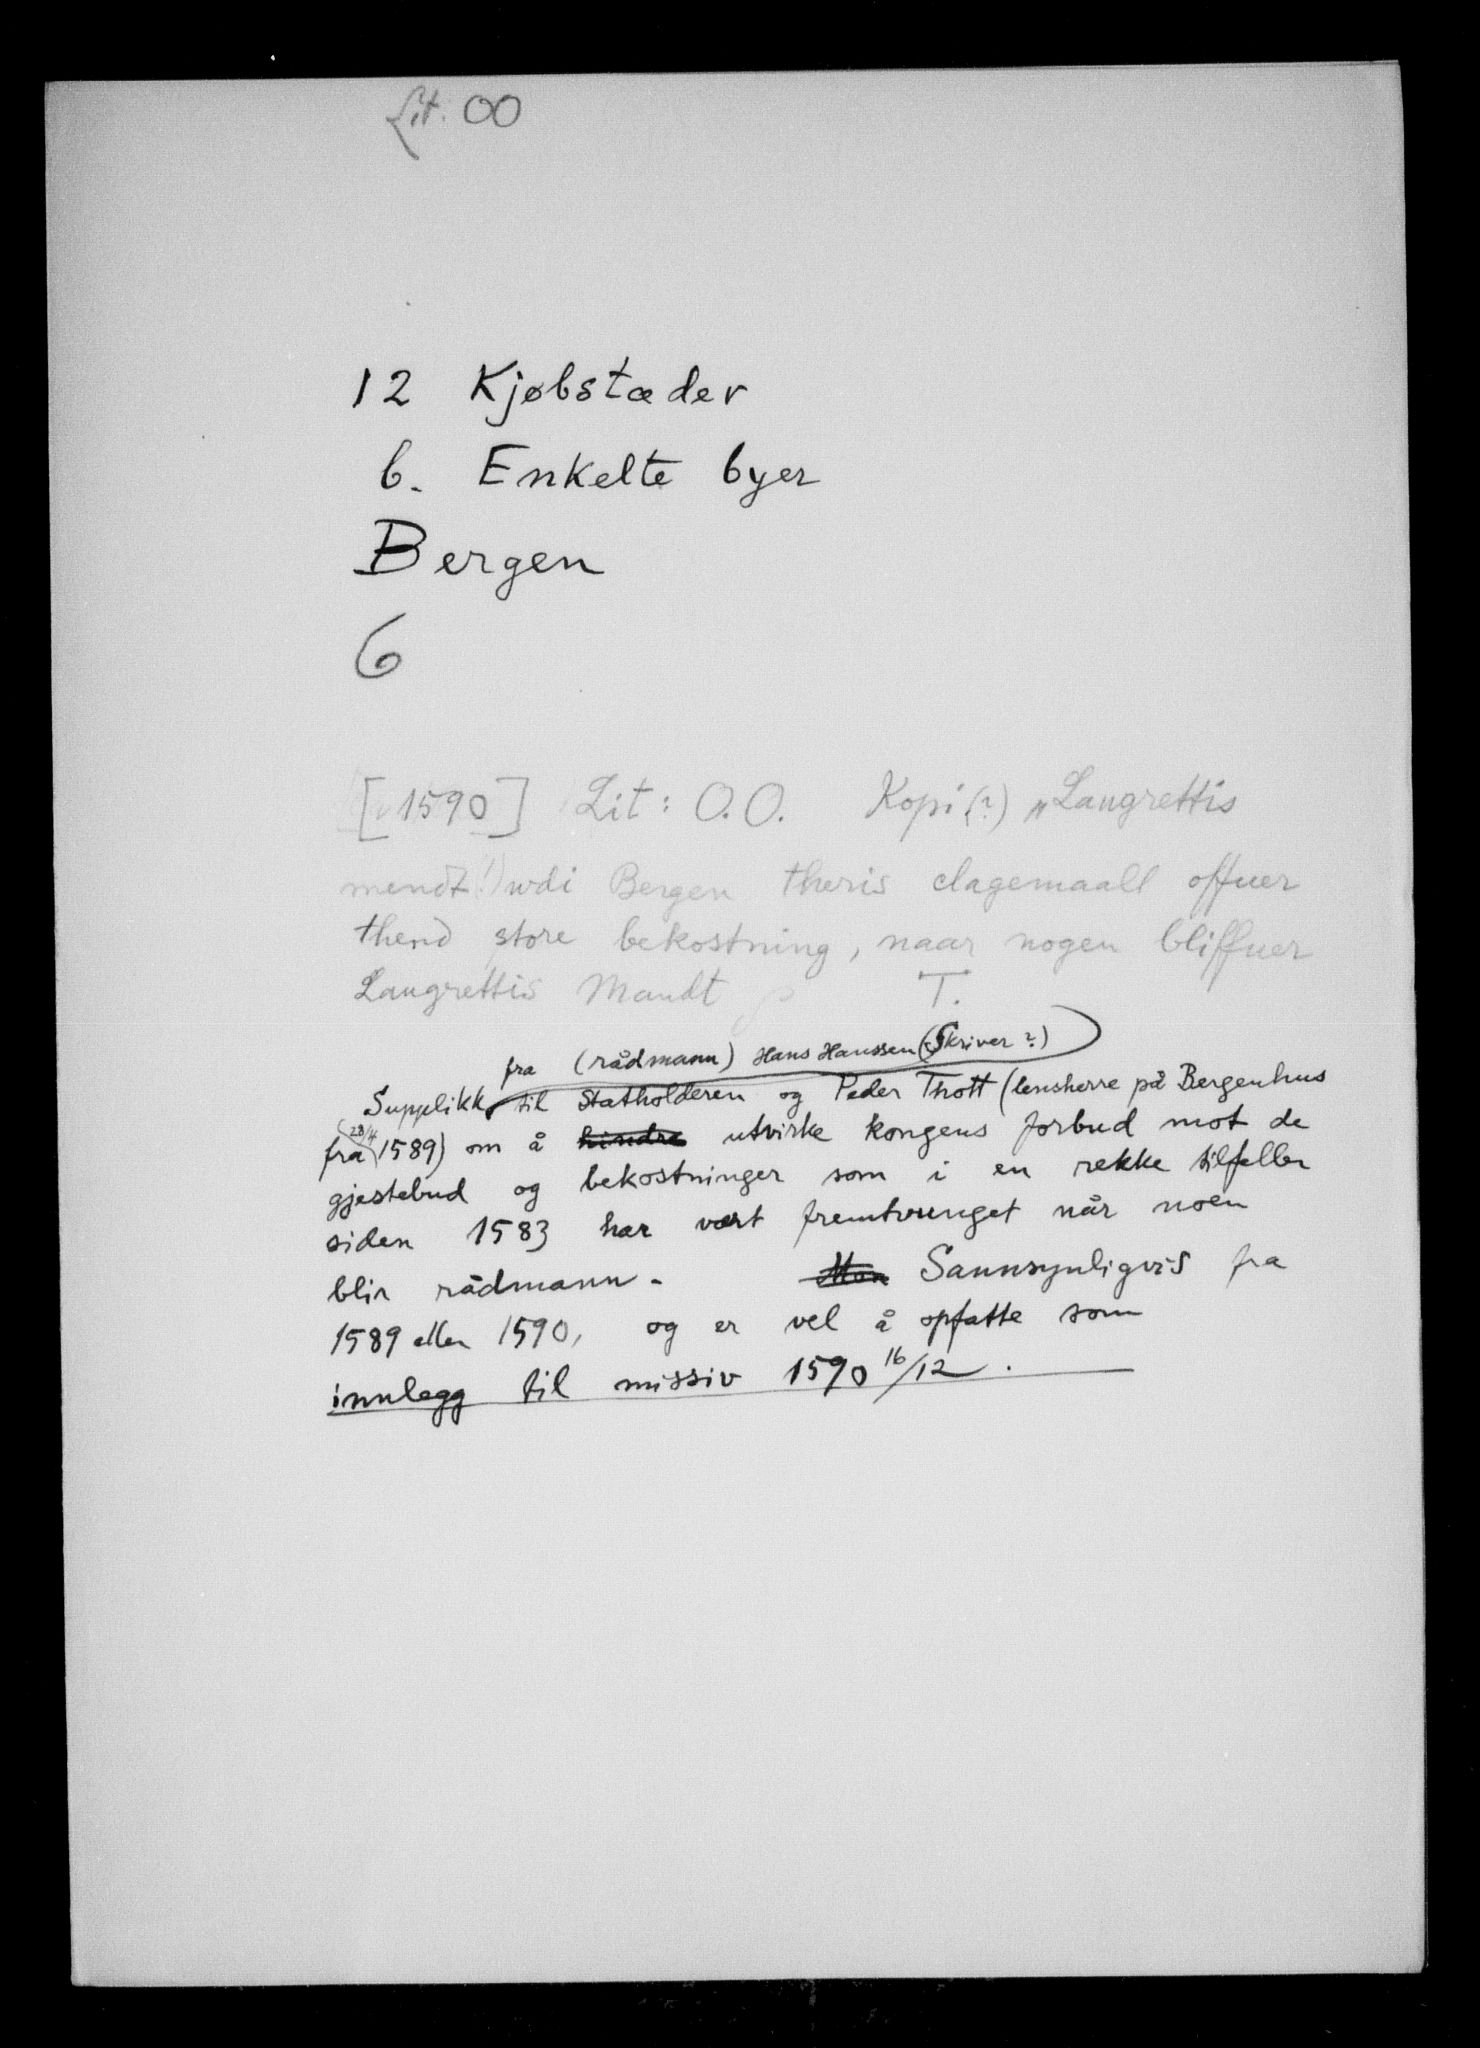 Lit. OO
12 Kjøbstæder
b. Enkelte byer
Bergen
6
[1590] Lit: O.O. Kopi (?) „Laugrettis
mendt (!) wdi Bergen theris clagemaall offuer
thend store bekostning, naar nogen bliffuer
Laugrettis Mandt T.
fra (rådmann) Hans Hanssen (Skriver?)
Supplikk til Statholderen og Peder Thott (lensherre på Bergenhus
fra 28/4 1589) om å hindre utvirke kongens forbud mot de
gjestebud og bekostninger som i en rekke tilfeller
siden 1583 har vært fremtvunget når noen
blir rådmann. Man Sannsynligvis fra
1589 eller 1590, og er vel å opfatte som
innlegg til missiv 1590 16/12.